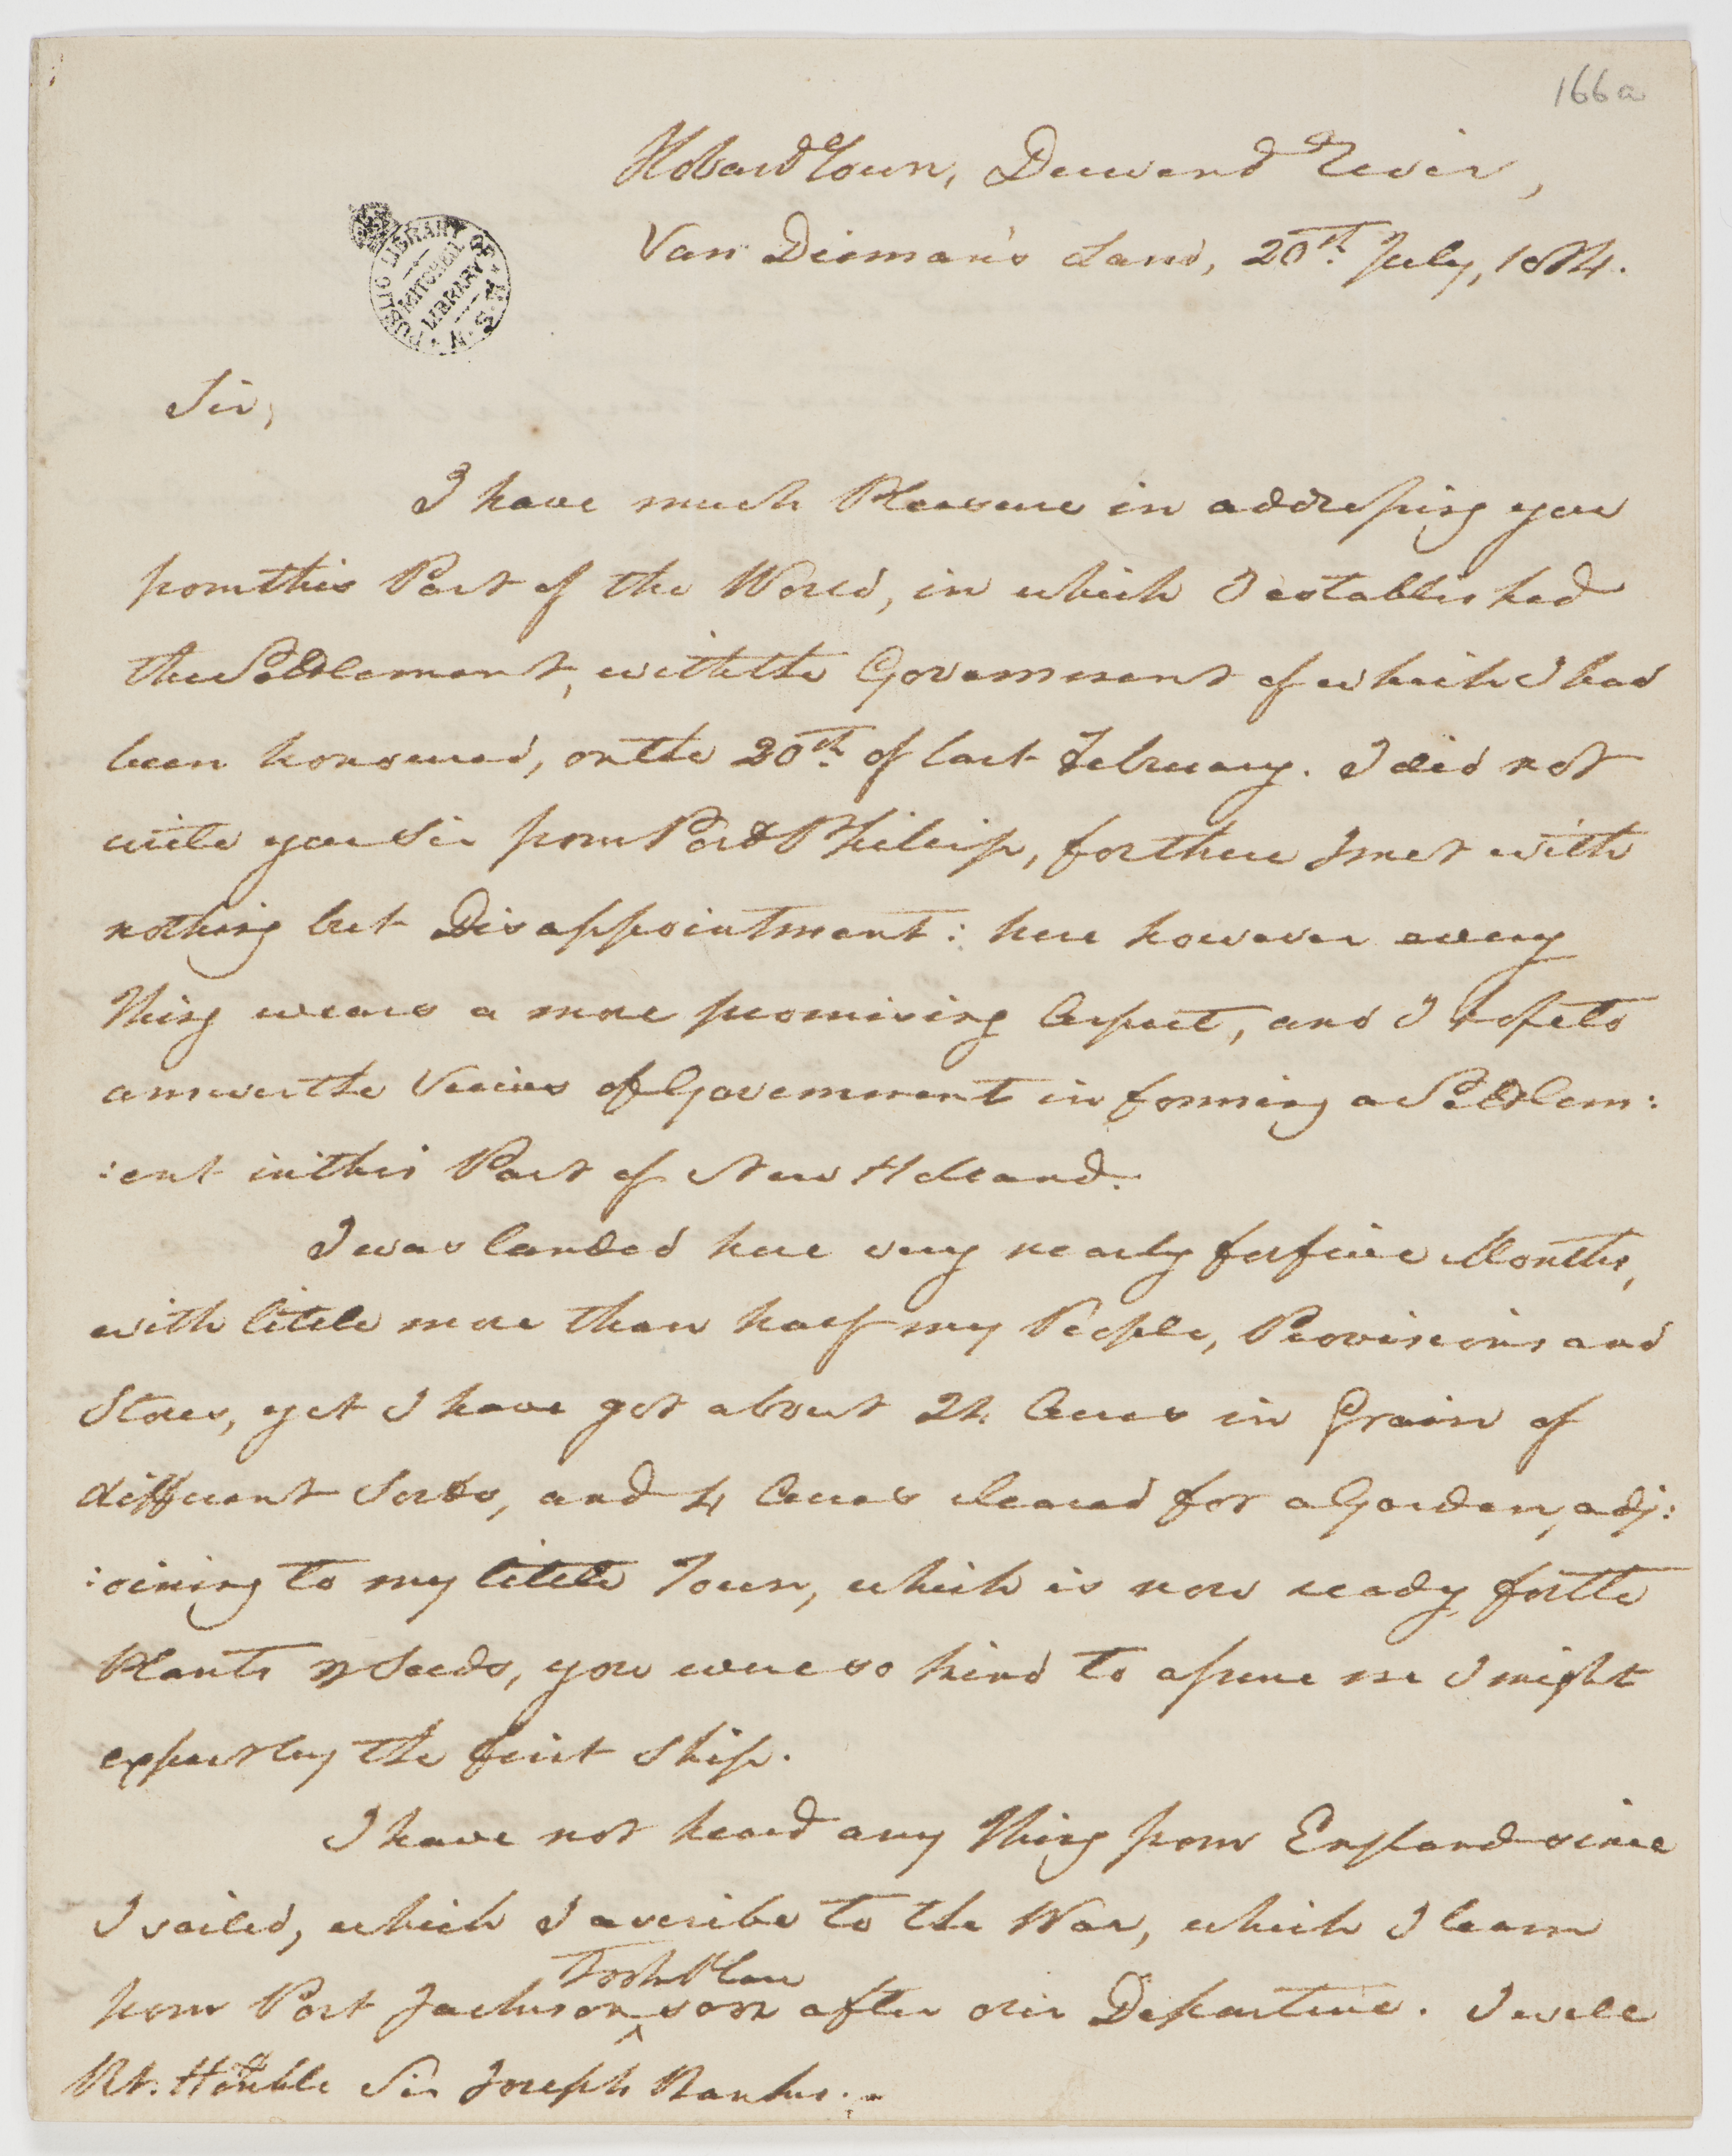 166a
Hobart Town, Derwent River,
Van Dieman's Land, 20th July, 1804.
PUBLIC LIBRARY OF N.S.W.
MITCHELL
LIBRARY
Sir,
I have much Pleasure in addressing you
from this Part of the World, in which I established
the Settlement, with the Government of which I had
been honoured, on the 20th of last February. I did not
write you Sir from Port Philip, for there I met with
nothing but Disappointment: here however every
Thing wears a more promising Aspect, and I hope to
answer the Views of Government in forming a Settlem:
:ent in this Part of New Holland.
I was landed here very nearly for five Months,
with little more than half my People, Provisions and
Stores, yet I have got about Acres in Grain of
different Sorts, and 4 Acres cleared for a Garden, adj:
:oining to my little Town, which is now ready for the
Plants & Seeds, you were so kind to assure me I might
expect by the first Ship.
I have not heard any Thing from England since
I sailed, which I ascribe to the War, which I learn
from Port Jackson took Place soon after our Departure. I will
Rt. Honble Sir Joseph Banks.